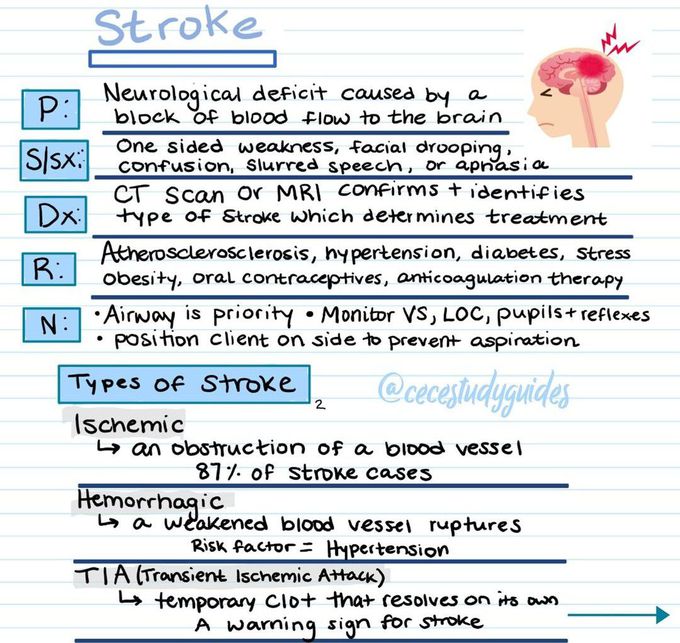 Stroke
P: Neurological deficit caused by a
block of blood flow to the brain
S/sx: One sided weakness, facial drooping,
confusion, slurred speech, or aphasia
Dx: CT scan or MRI confirms + identifies
type of stroke which determines treatment
R: Atherosclerosclerosis, hypertension, diabetes, stress
obesity, oral contraceptives, anticoagulation therapy
N: • Airway is priority • Monitor VS, LOC, pupils + reflexes
• position client on side to prevent aspiration
Types of Stroke 2
@cecestudyguides
Ischemic
↳ an obstruction of a blood vessel
87% of stroke cases
Hemorrhagic
↳ a weakened blood vessel ruptures
Risk factor = Hypertension
TIA (Transient Ischemic Attack)
↳ temporary clot that resolves on its own
A warning sign for stroke